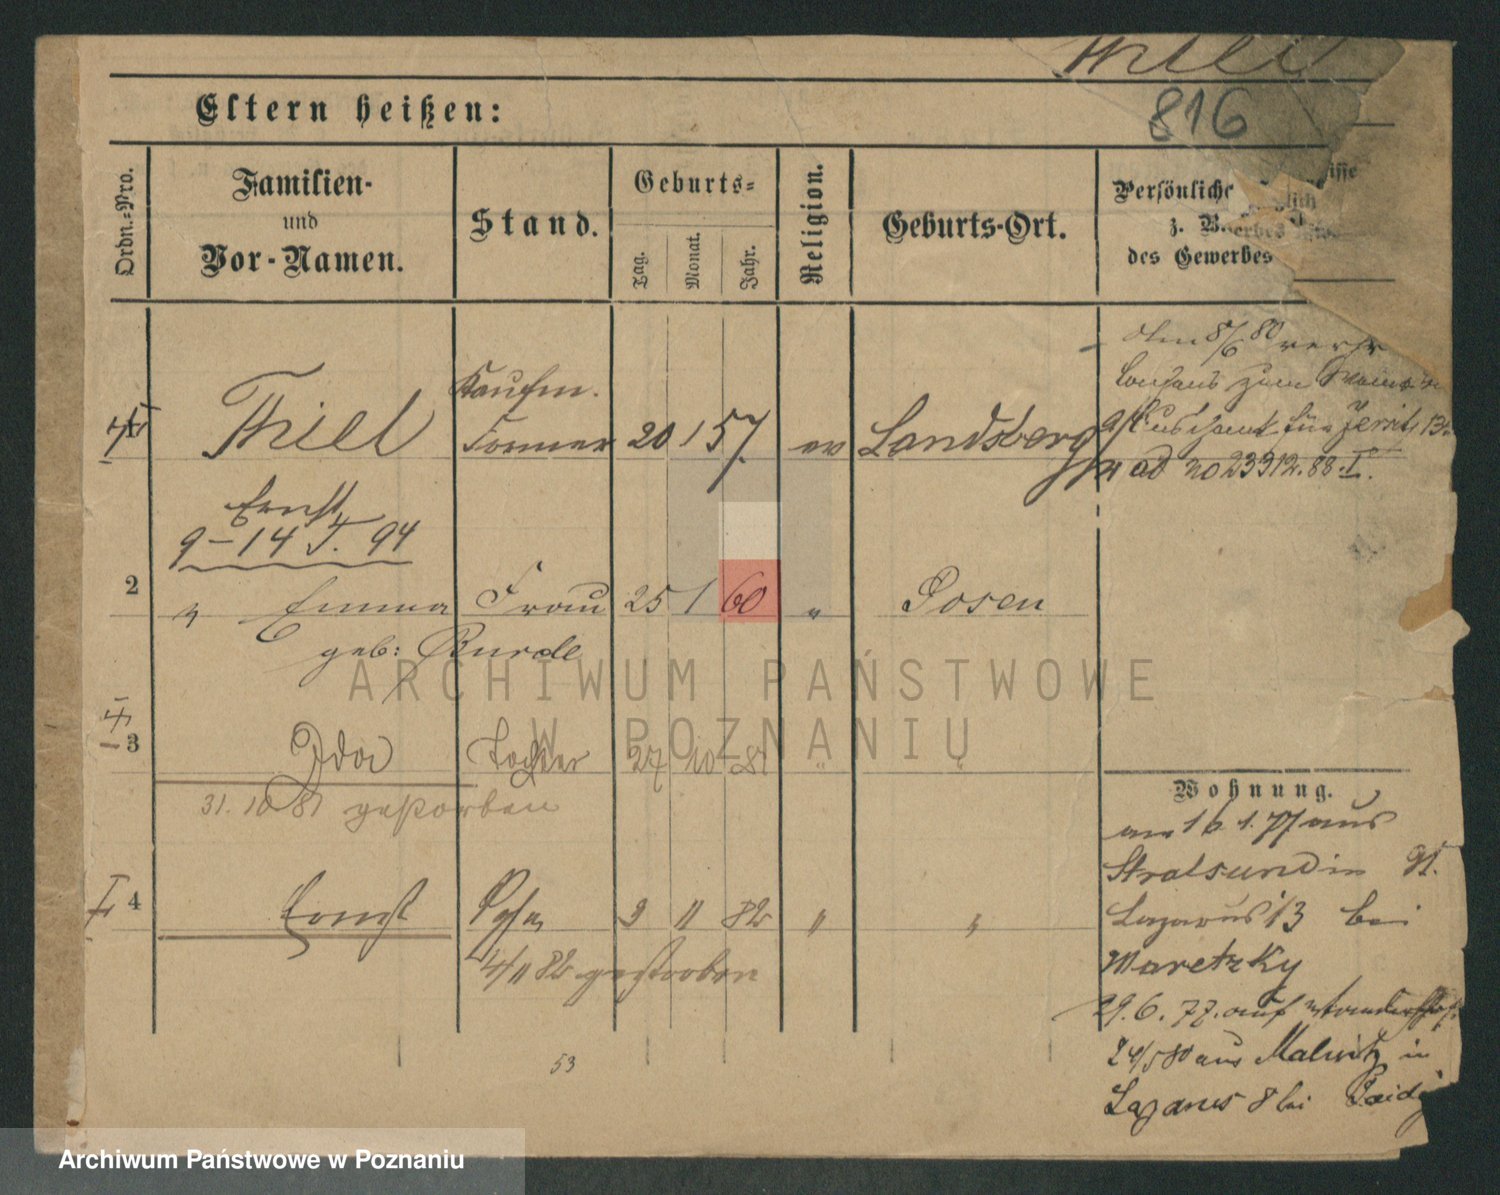 Thiel
816
Eltern heißen:
Ordn.-Nro.
Familien-
und
Vor-Namen.
Stand.
Geburts-
Tag.
Monat.
Jahr.
Religion.
Geburts-Ort.
Persönliche
des Gewerbes
Am 8/6 80
Kaufm.
Thiel Former 20 1 57. ev Landsberg
ad no 23312.88.I.
Ernst
9-14 J. 94
2 " Emma Frau 25 1 60 " Posen
geb: Burde
3 Ida Tochter 27 10 81 " "
31.10 81 gestorben
Wohnung.
am 16.1.77 aus
Stralsund in
4 Ernst 9 11 82 " "
Lazarus 13 bei
Maretzky
4/11 82 gestorben
29.6.77. auf
24/5 80 aus Malwitz in
Lazarus 8 bei
53
ARCHIWUM PAŃSTWOWE
W POZNANIU
Archiwum Państwowe w Poznaniu